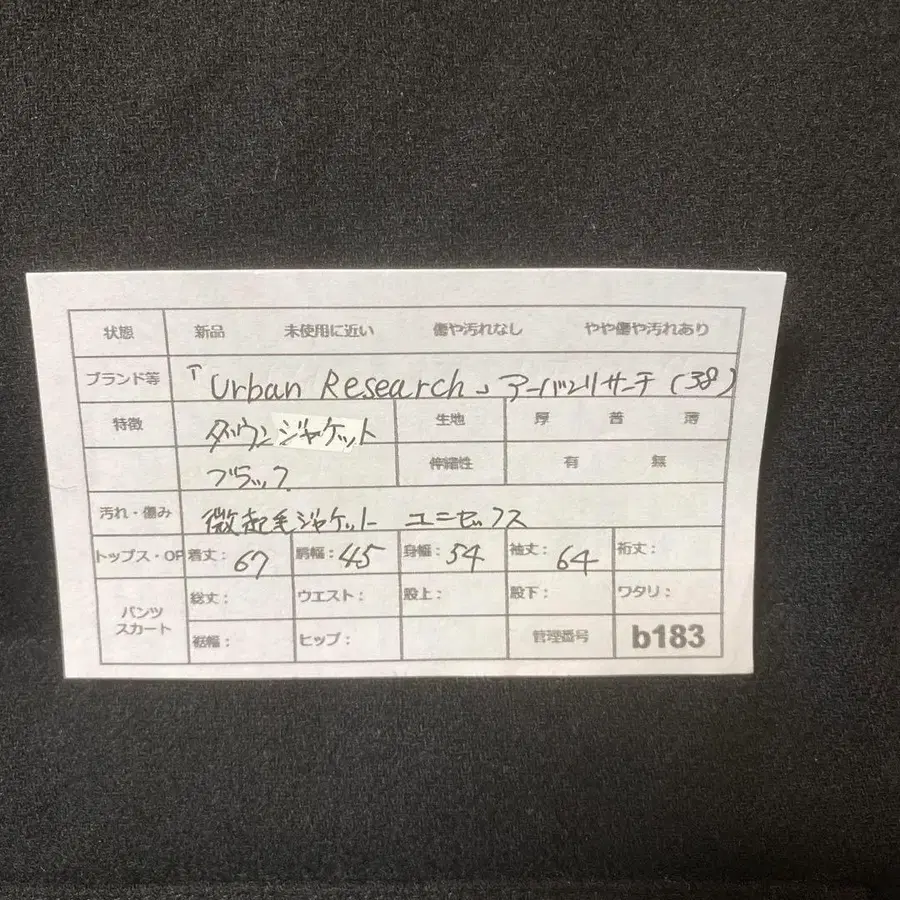 状態 新品 未使用に近い 傷や汚れなし やや傷や汚れあり
ブランド等 「Urban Research」アーバンリサーチ(38)
特徴 ダウンジャケット 生地 厚 普 薄
ブラック 伸縮性 有 無
汚れ・傷み 微起毛ジャケット ユニセックス
トップス・OP 着丈：67 肩幅：45 身幅：54 袖丈：64 裄丈：
パンツ スカート 総丈： ウエスト：股上： 股下： ワタリ：
裾幅： ヒップ： 管理番号 b183